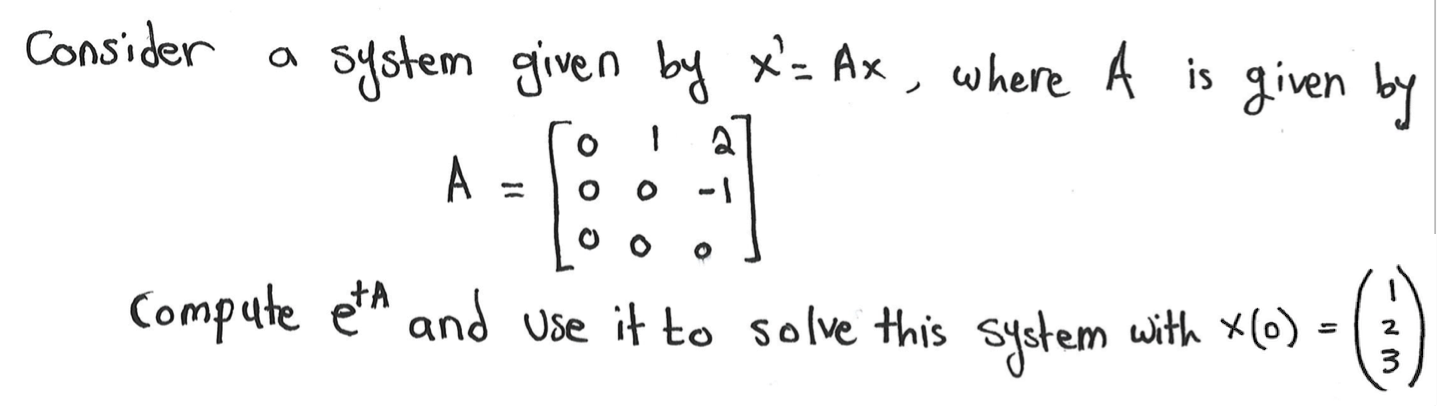 Consider a system given by x' = Ax, where A is given by
A = [0 1 2
0 0 -1
0 0 0]
Compute e^tA and use it to solve this system with x(0) = (1
2
3)